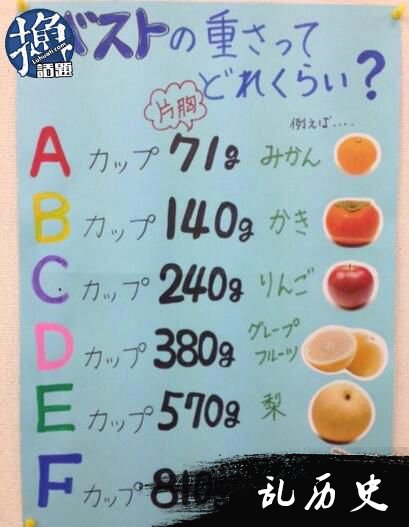 換話題
Luhuati.com
バストの重さって
どれくらい?
片胸
例えば....
A カップ 71g みかん
B カップ 140g かき
C カップ 240g りんご
D カップ 380g グレープ
フルーツ
E カップ 570g 梨
F カップ 810
乱历史